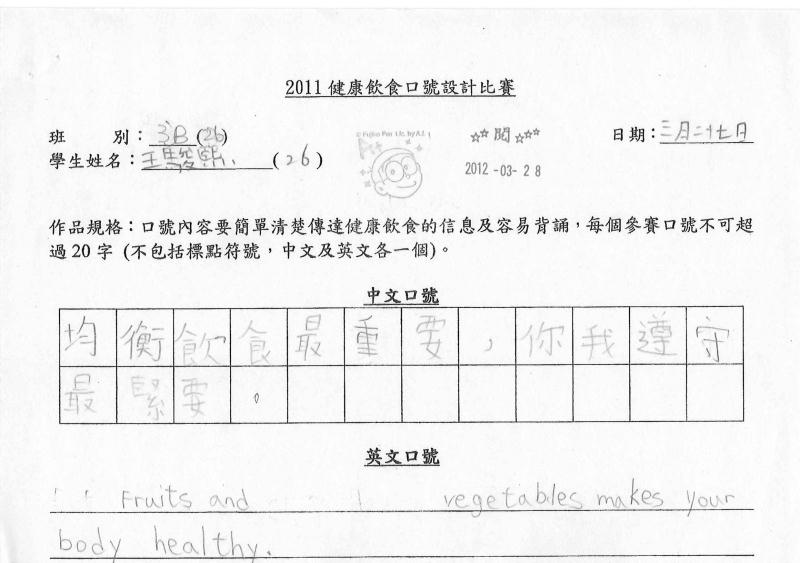 2011 健康飲食口號設計比賽
班 別：3B (26)
學生姓名：王駿熙 (26)
© Fujiko Pro Lic. by A.I.
A+
☆☆ 閱 ☆☆☆
2012 -03- 28
日期：三月二十七日
作品規格：口號內容要簡單清楚傳達健康飲食的信息及容易背誦，每個參賽口號不可超
過 20 字 (不包括標點符號，中文及英文各一個)。
中文口號
均衡飲食最重要，你我遵守
最緊要。
英文口號
Fruits and vegetables makes your
body healthy.